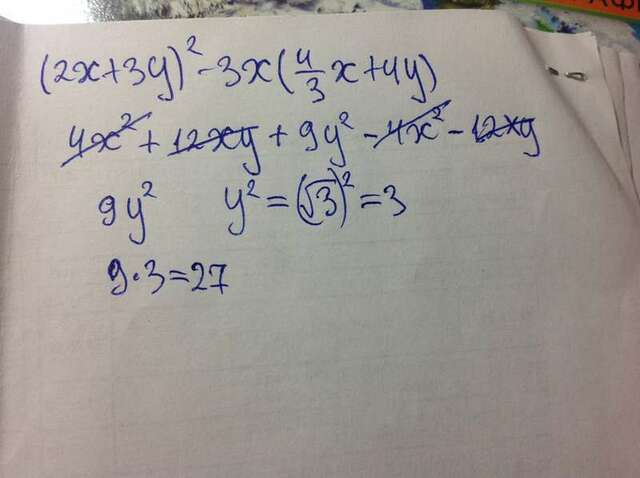 (2x+3y)² - 3x(4/3x+4y)
4x² + 12xy + 9y² - 4x² - 12xy
9y² y² = (√3)² = 3
9·3=27